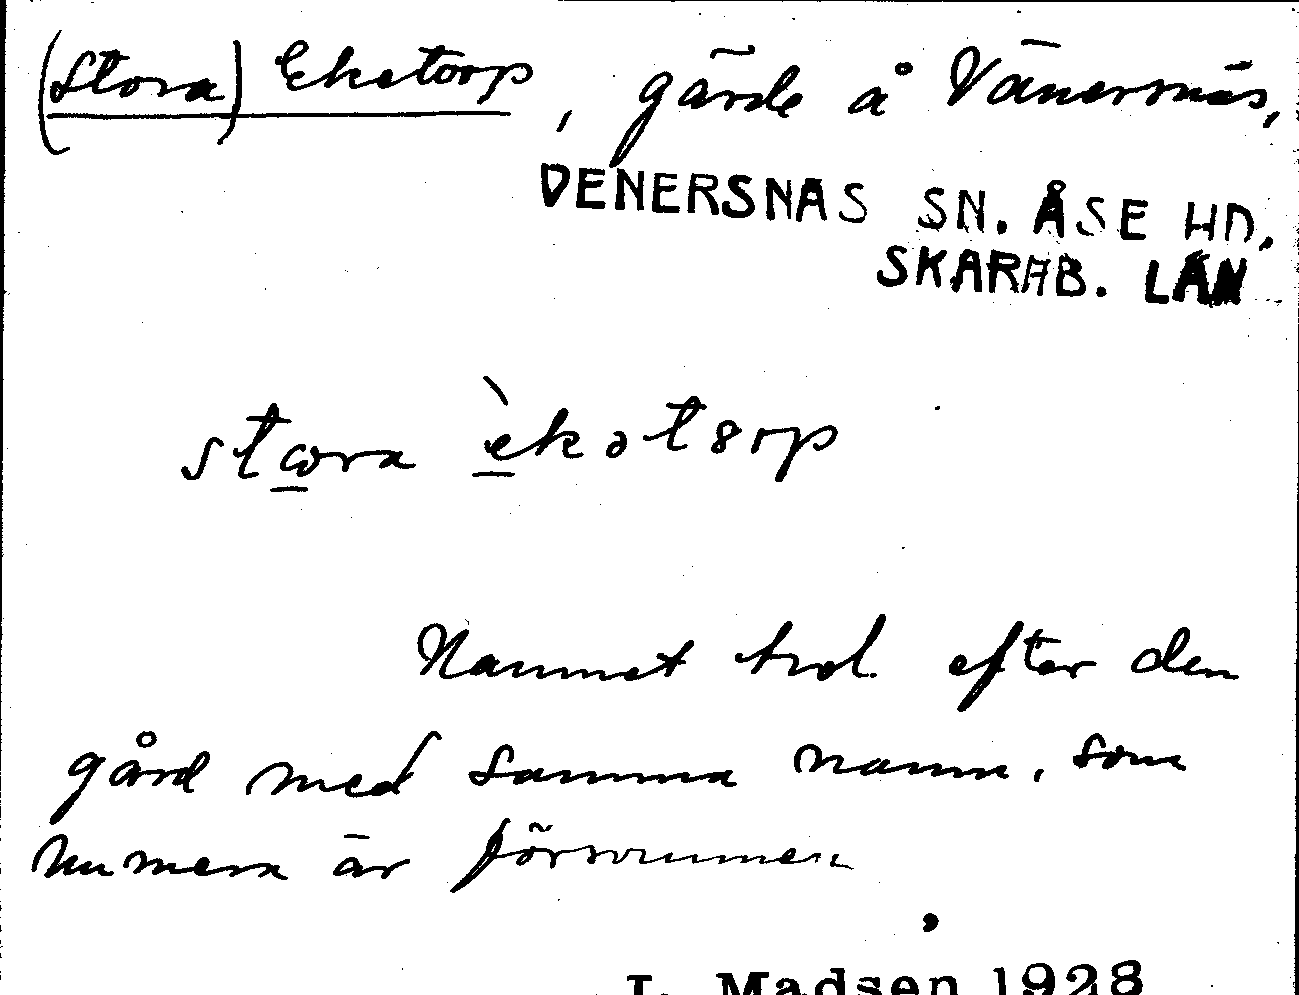 (Stora) Eketorp, gärde å Vänersnäs,
VENERSNÄS SN. ÅSE HD.
SKARAB. LÄN
stωra èkətȣrp
Namnet trol. efter den
gård med samma namn, som
numera är försvunnen
L. Madsen 1928